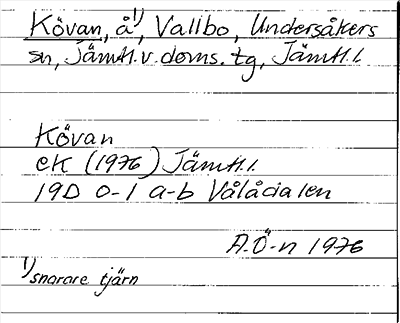 Kövan, å 1), Vallbo, Undersåkers
sn, Jämtl. v. doms. tg, Jämtl. l.
Kövan
ek (1976) Jämtl. l.
19D 0-1 a-b Vålådalen
A.Ö-n 1976
1) snarare tjärn